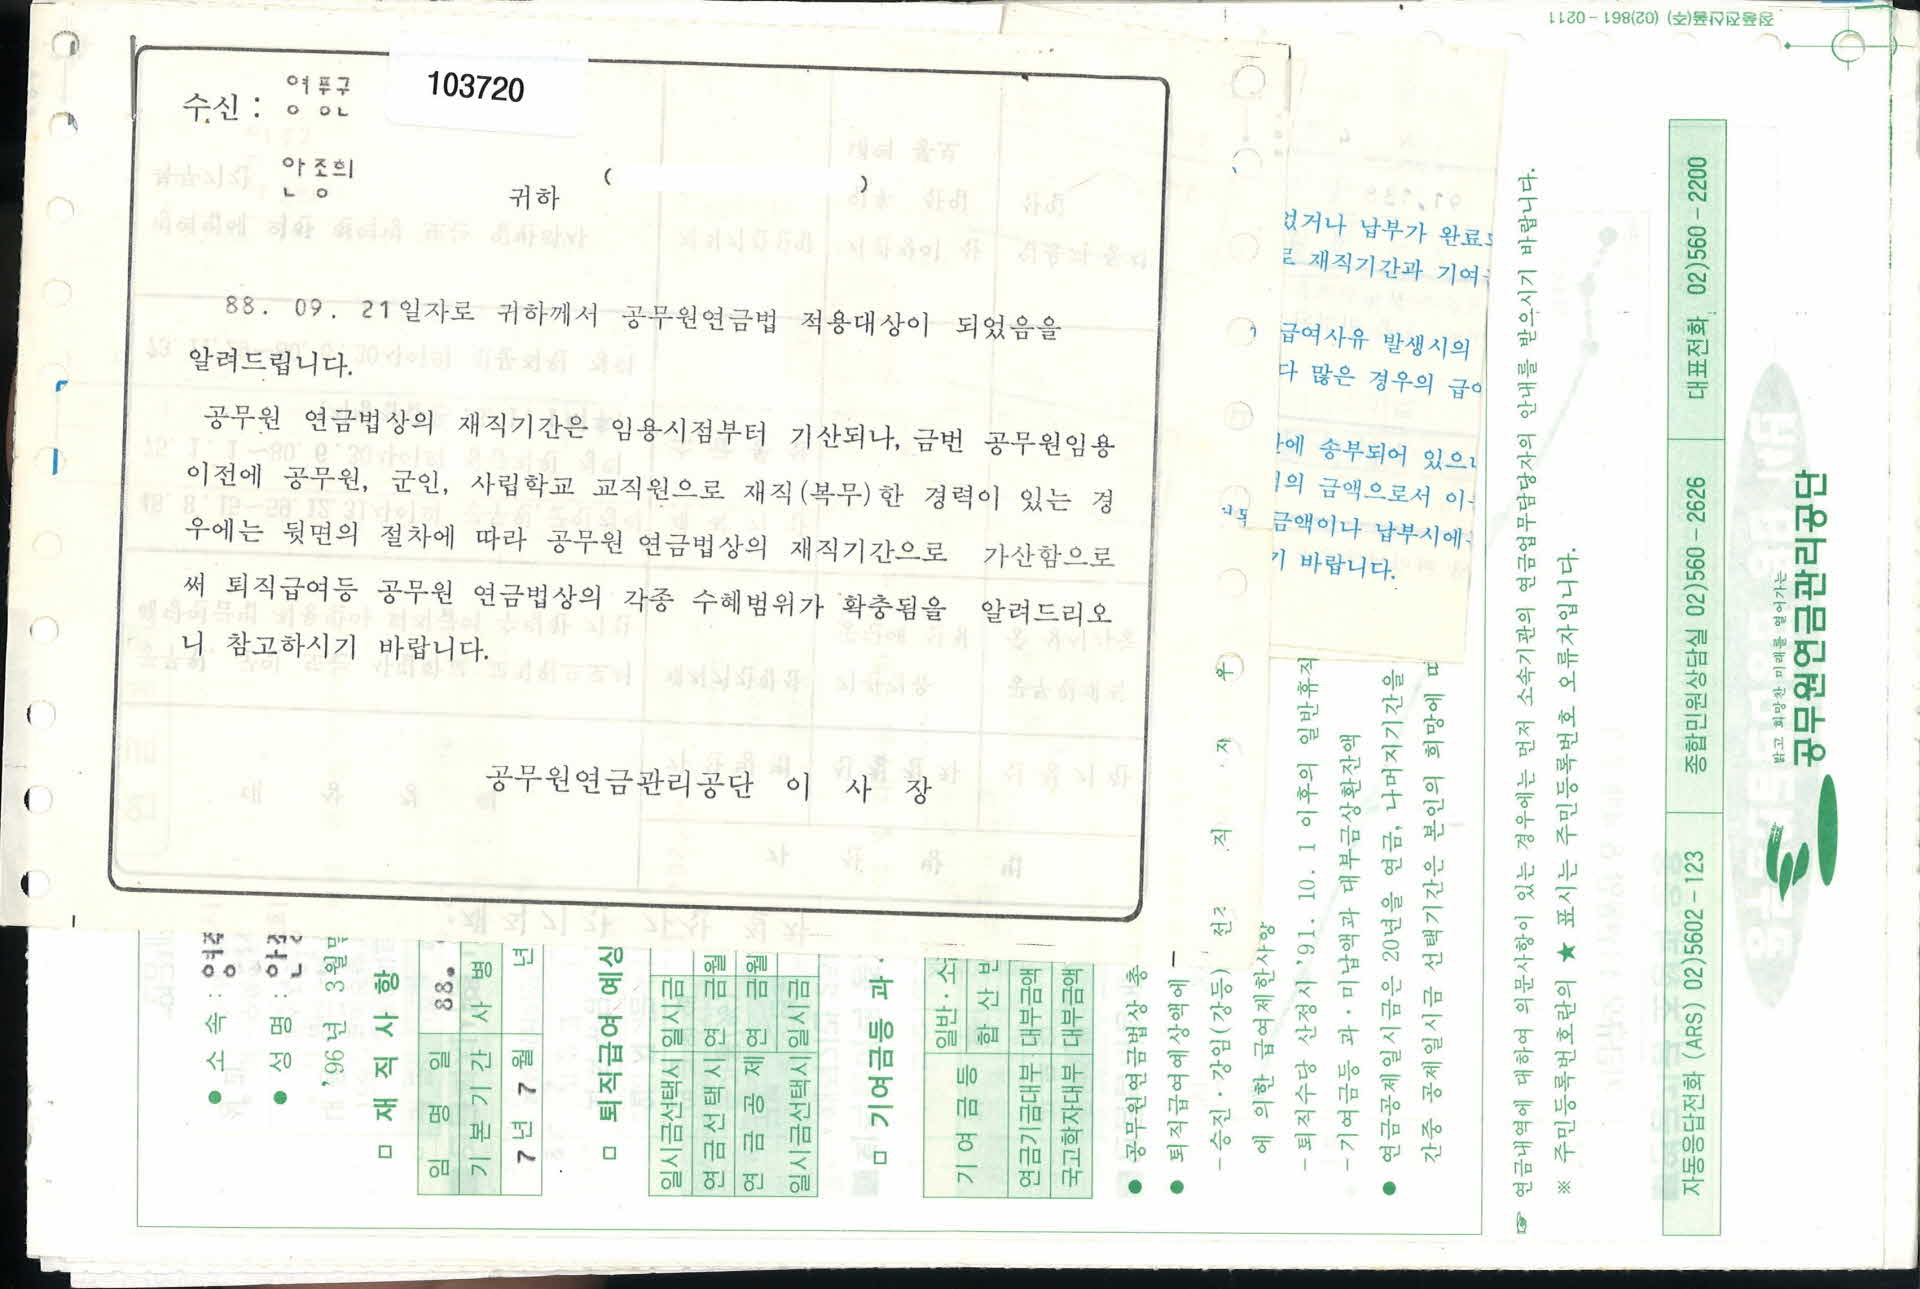 103720
수신 :
안종희
귀하
( )
88. 09. 21일자로 귀하께서 공무원연금법 적용대상이 되었음을
알려드립니다.
공무원 연금법상의 재직기간은 임용시점부터 기산되나, 금번 공무원임용
이전에 공무원, 군인, 사립학교 교직원으로 재직(복무)한 경력이 있는 경
우에는 뒷면의 절차에 따라 공무원 연금법상의 재직기간으로 가산함으로
써 퇴직급여등 공무원 연금법상의 각종 수혜범위가 확충됨을 알려드리오
니 참고하시기 바랍니다.
공무원연금관리공단 이 사 장
었거나 납부가 완료
로 재직기간과 기여
급여사유 발생시의
다 많은 경우의 급여
에 송부되어 있으
의 금액으로서 이
금액이나 납부시에
바랍니다.
● 소 속 :
● 성 명 :
'96년 3월
□ 재 직 사 항
임 명 일 88.
기 본 기 간 사 병
7 년 7 월 년
□ 퇴직급여 예상
일시금선택시 일시금
연금선택시 연 금월
연 금 공 제 연 금월
일시금선택시 일시금
□ 기여금등 과 ·
기 여 금 등 일반 · 소
합 산 반
연금기금대부 대부금액
국고학자대부 대부금액
● 공무원연금법상 총
● 퇴직급여예상액에
- 승진 · 강임(강등) 전
에 의한 급여제한사항
- 퇴직수당 산정시 '91. 10. 1 이후의 일반휴직
- 기여금등 과 · 미납액과 대부금상환잔액
● 연금공제일시금은 20년을 연금, 나머지기간을
간중 공제일시금 선택기간은 본인의 희망에 따
☞ 연금내역에 대하여 의문사항이 있는 경우에는 먼저 소속기관의 연금업무담당자의 안내를 받으시기 바랍니다.
※ 주민등록번호란의 ★ 표시는 주민등록번호 오류자입니다.
자동응답전화 (ARS) 02)5602-123 종합민원상담실 02)560-2626 대표전화 02)560-2200
밝고 희망찬 미래를 열어가는
공무원연금관리공단
정풍전산폼(주) (02)861-0211